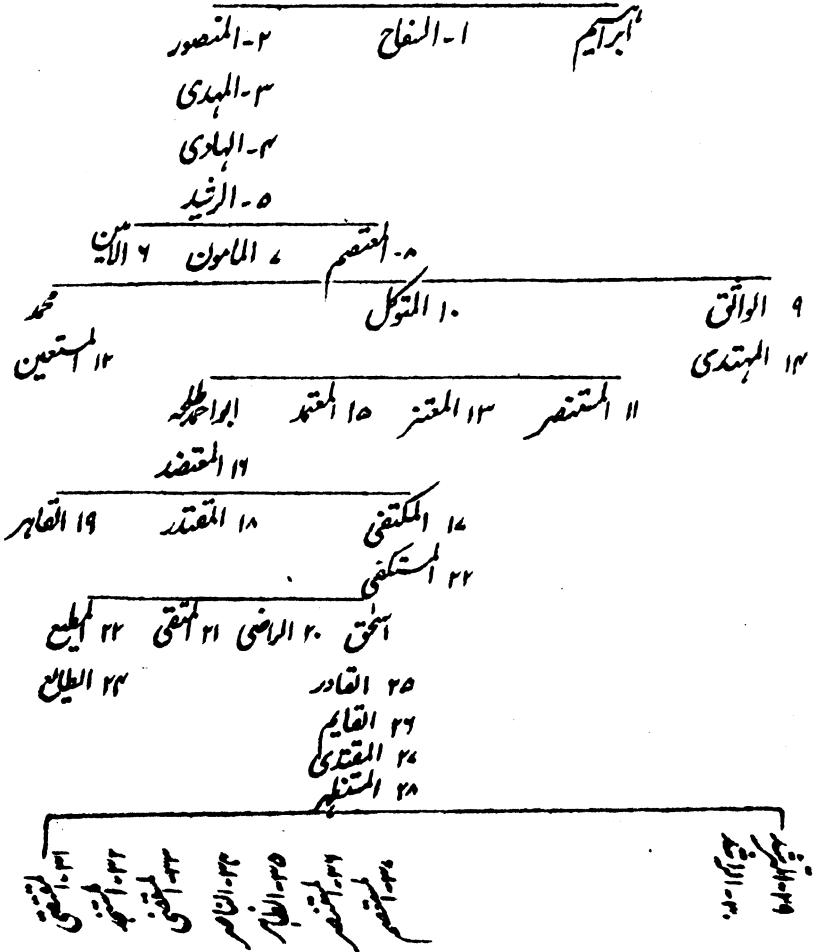 ابراہیم ۱-السفاح ۲-المنصور
۳-المہدی
۴-الہادی
۵-الرشید
۸-المعتصم ۷ المامون ۶ الامین
۹ الواثق ۱۰ المتوکل محمد
۱۴ المہتدی ۱۲ المستعین
۱۱ المستنصر ۱۳ المعتز ۱۵ المعتمد ابواحمد طلحہ
۱۶ المعتضد
۱۷ المکتفی ۱۸ المقتدر ۱۹ القاہر
۲۲ المستکفی
اسحٰق ۲۰ الراضی ۲۱ المتقی ۲۲ المطیع
۲۵ القادر ۲۴ الطایع
۲۶ القایم
۲۷ المقتدی
۲۸ المستظہر
۲۹-المسترشد
۳۰-الراشد
۳۱-المقتفی
۳۲-المستنجد
۳۳-المستضی
۳۴-الناصر
۳۵-الظاہر
۳۶-المستنصر
۳۷-المستعصم